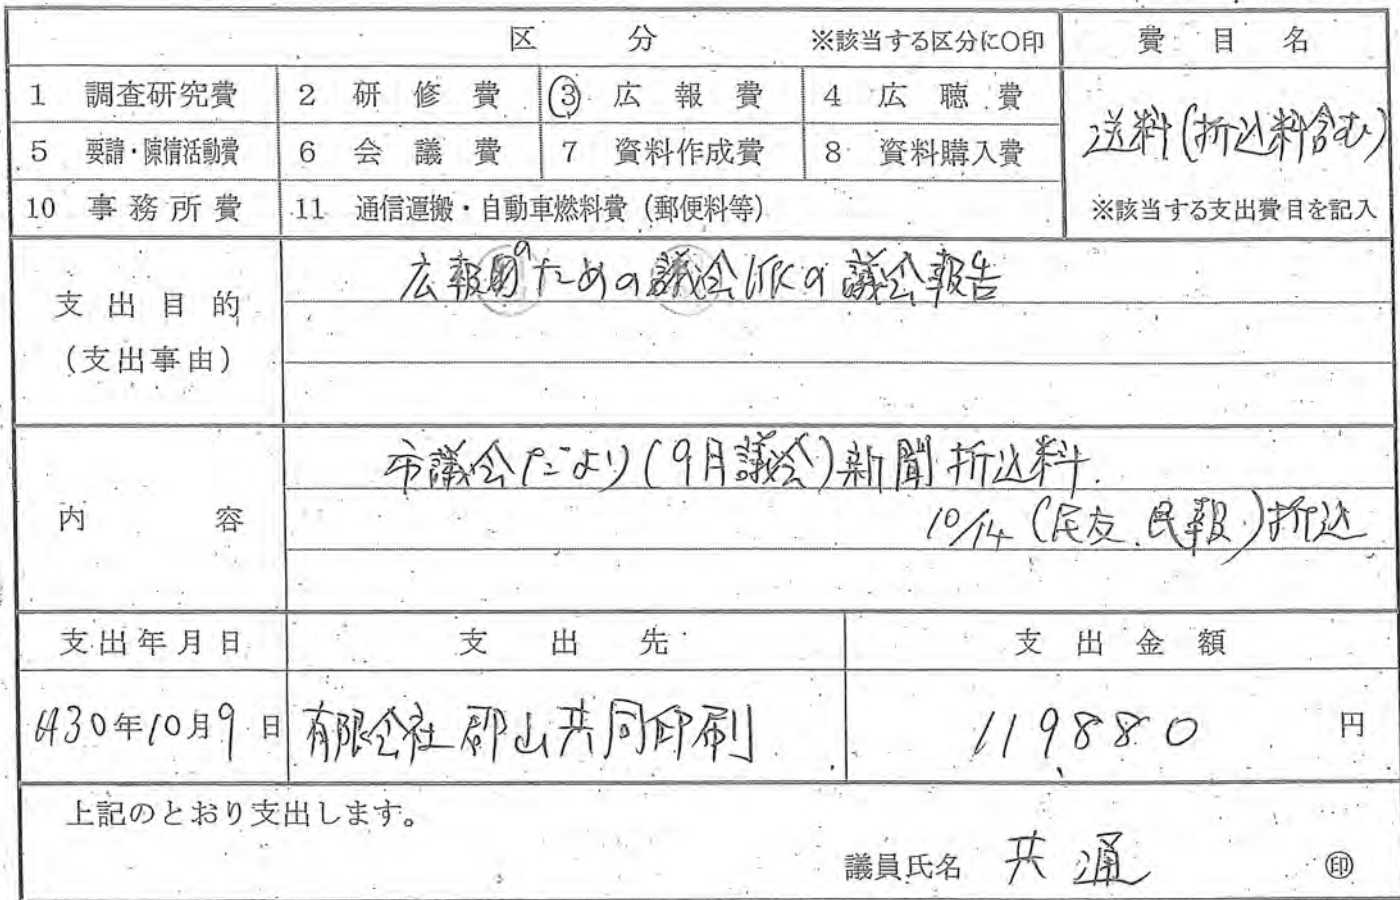 区 分 ※該当する区分に○印 費 目 名
1 調査研究費 2 研 修 費 ③ 広 報 費 4 広 聴 費
送料(折込料含む)
5 要請・陳情活動費 6 会 議 費 7 資料作成費 8 資料購入費
10 事務所費 11 通信運搬・自動車燃料費(郵便料等) ※該当する支出費目を記入
支出目的
(支出事由)
広報のための議会 の議会報告
内 容
市議会だより(9月議会)新聞折込料.
10/14 (民友.民報)折込
支出年月日 支 出 先 支 出 金 額
H30年10月9日 有限会社 郡山共同印刷 119880 円
上記のとおり支出します。
議員氏名 共通 ㊞